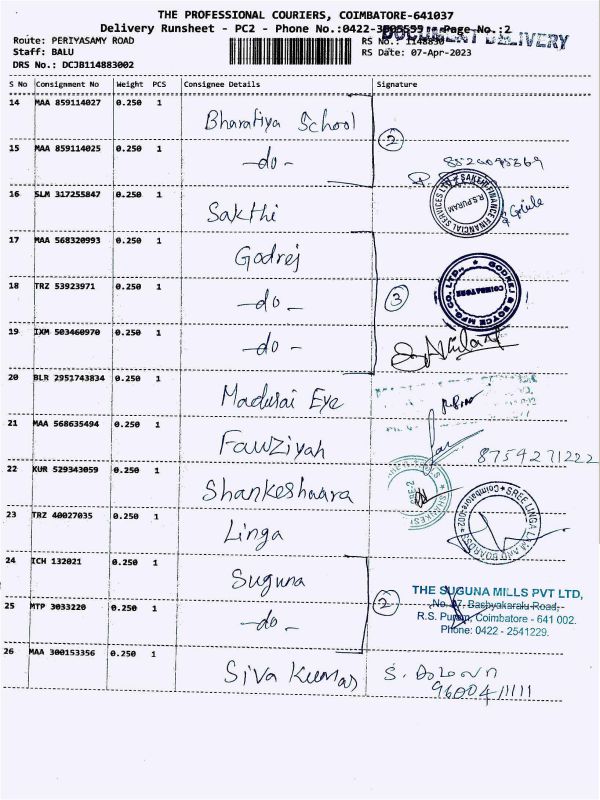 THE PROFESSIONAL COURIERS, COIMBATORE-641037
Delivery Runsheet - PC2 - Phone No.:0422-3005555 Page No.:2
DOCUMENT DELIVERY
Route: PERIYASAMY ROAD RS No.: 1148830
Staff: BALU RS Date: 07-Apr-2023
DRS No.: DCJB114883002
S No Consignment No Weight PCS Consignee Details Signature
14 MAA 859114027 0.250 1 Bharatiya School
2
15 MAA 859114025 0.250 1 -do-
16 SLM 317255847 0.250 1 Sakthi
SAKTHI FINANCE FINANCIAL SERVICES LTD
R.S. PURAM
17 MAA 568320993 0.250 1 Godrej
18 TRZ 53923971 0.250 1 -do- 3
GODREJ & BOYCE MFG. CO. LTD.,
COIMBATORE
19 IXM 503460970 0.250 1 -do-
20 BLR 2951743834 0.250 1 Madurai Eye
21 MAA 568635494 0.250 1 Fauziyah 8754271222
22 KUR 529343059 0.250 1 Shankeshwara
23 TRZ 40027035 0.250 1 Linga
SREE LINGA
Coimbatore
24 ICH 132021 0.250 1 Suguna
THE SUGUNA MILLS PVT LTD,
2 Bashyakaralu Road,
25 MTP 3033220 0.250 1 -do- R.S. Puram, Coimbatore - 641 002.
Phone: 0422 - 2541229.
26 MAA 300153356 0.250 1 Siva Kumar
9600411111